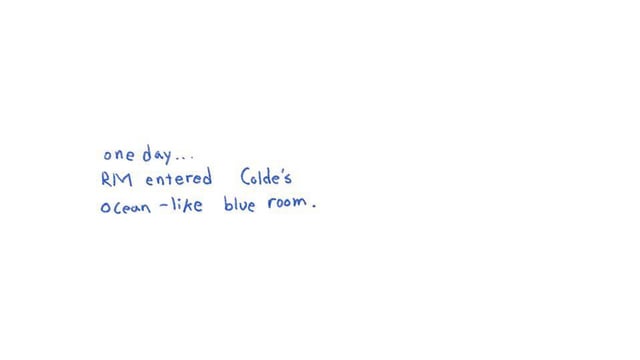 one day...
RM entered Colde's
ocean-like blue room.